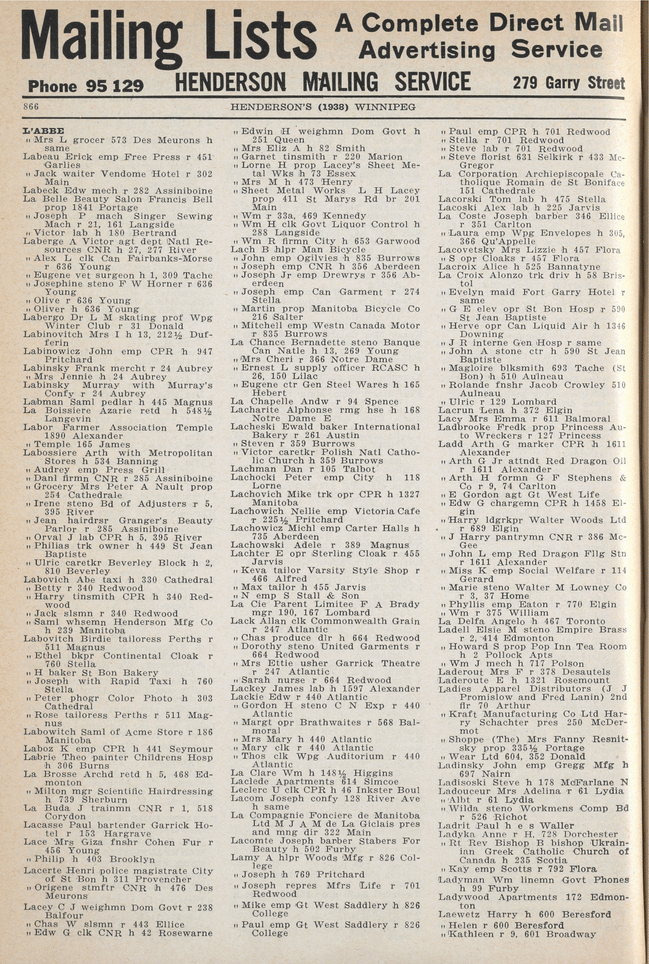 Mailing Lists
A Complete Direct Mail
Advertising Service
Phone 95 129 HENDERSON MAILING SERVICE 279 Garry Street
866 HENDERSON'S (1938) WINNIPEG
L'ABBE
" Mrs L grocer 573 Des Meurons h
same
Labeau Erick emp Free Press r 451
Garlies
" Jack waiter Vendome Hotel r 302
Main
Labeck Edw mech r 282 Assiniboine
La Belle Beauty Salon Francis Bell
prop 1841 Portage
" Joseph P mach Singer Sewing
Mach r 21, 161 Langside
" Victor lab h 180 Bertrand
Laberge A Victor agt dept Natl Re-
sources CNR h 27, 277 River
" Alex L clk Can Fairbanks-Morse
r 636 Young
" Eugene vet surgeon h 1, 309 Tache
" Josephine steno F W Horner r 636
Young
" Olive r 636 Young
" Oliver h 636 Young
Labergo Dr L M skating prof Wpg
Winter Club r 31 Donald
Labinovitch Mrs I h 13, 212½ Duf-
ferin
Labinowicz John emp CPR h 947
Pritchard
Labinsky Frank mercht r 24 Aubrey
" Mrs Jennie h 24 Aubrey
Labinsky Murray with Murray's
Confy r 24 Aubrey
Labman Saml pedlar h 445 Magnus
La Boissiere Azarie retd h 548½
Langevin
Labor Farmer Association Temple
1890 Alexander
" Temple 165 James
Labossiere Arth with Metropolitan
Stores h 534 Banning
" Audrey emp Press Grill
" Danl firmn CNR r 285 Assiniboine
" Grocery Mrs Peter A Nault prop
254 Cathedrale
" Irene steno Bd of Adjusters r 5,
395 River
" Jean hairdrsr Granger's Beauty
Parlor r 285 Assiniboine
" Orval J lab CPR h 5, 395 River
" Philias trk owner h 449 St Jean
Baptiste
" Ulric caretkr Beverley Block h 2,
810 Beverley
Labovich Abe taxi h 330 Cathedral
" Betty r 340 Redwood
" Harry tinsmith CPR h 340 Red-
wood
" Jack slsmn r 340 Redwood
" Saml whsemn Henderson Mfg Co
h 239 Manitoba
Labovitch Birdie tailoress Perths r
511 Magnus
" Ethel bkpr Continental Cloak r
760 Stella
" H baker St Bon Bakery
" Joseph with Rapid Taxi h 760
Stella
" Peter phogr Color Photo h 303
Cathedral
" Rose tailoress Perths r 511 Mag-
nus
Labowitch Saml of Acme Store r 186
Manitoba
Laboz K emp CPR h 441 Seymour
Labrie Theo painter Childrens Hosp
h 306 Burns
La Brosse Archd retd h 5, 468 Ed-
monton
" Milton mgr Scientific Hairdressing
h 739 Sherburn
La Buda J trainmn CNR r 1, 518
Corydon
Lacasse Paul bartender Garrick Ho-
tel r 153 Hargrave
Lace Mrs Giza fnshr Cohen Fur r
456 Young
" Philip h 403 Brooklyn
Lacerte Henri police magistrate City
of St Bon h 311 Provencher
" Origene stmftr CNR h 476 Des
Meurons
Lacey C J weighmn Dom Govt r 238
Balfour
" Chas W slsmn r 443 Ellice
" Edw G clk CNR h 42 Rosewarne
" Edwin H weighmn Dom Govt h
251 Queen
" Mrs Eliz A h 82 Smith
" Garnet tinsmith r 220 Marion
" Lorne H prop Lacey's Sheet Me-
tal Wks h 73 Essex
" Mrs M h 473 Henry
" Sheet Metal Works L H Lacey
prop 411 St Marys Rd br 201
Main
" Wm r 33a, 469 Kennedy
" Wm H clk Govt Liquor Control h
288 Langside
" Wm R firmn City h 653 Garwood
Lach B hlpr Man Bicycle
" John emp Ogilvies h 835 Burrows
" Joseph emp CNR h 356 Aberdeen
" Joseph Jr emp Drewrys r 356 Ab-
erdeen
" Joseph emp Can Garment r 274
Stella
" Martin prop Manitoba Bicycle Co
216 Salter
" Mitchell emp Westn Canada Motor
r 835 Burrows
La Chance Bernadette steno Banque
Can Natle h 13, 269 Young
" Mrs Cheri r 366 Notre Dame
" Ernest L supply officer RCASC h
26, 150 Lilac
" Eugene ctr Gen Steel Wares h 165
Hebert
La Chapelle Andw r 94 Spence
Lacharite Alphonse rmg hse h 168
Notre Dame E
Lacheski Ewald baker International
Bakery r 261 Austin
" Steven r 359 Burrows
" Victor caretkr Polish Natl Catho-
lic Church h 359 Burrows
Lachman Dan r 105 Talbot
Lachocki Peter emp City h 118
Lorne
Lachovich Mike trk opr CPR h 1327
Manitoba
Lachowich Nellie emp Victoria Cafe
r 225½ Pritchard
Lachowicz Michl emp Carter Halls h
735 Aberdeen
Lachowski Adele r 389 Magnus
Lachter E opr Sterling Cloak r 455
Jarvis
" Keva tailor Varsity Style Shop r
466 Alfred
" Max tailor h 455 Jarvis
" N emp S Stall & Son
La Cie Parent Limitee F A Brady
mgr 190, 167 Lombard
Lack Allan clk Commonwealth Grain
r 247 Atlantic
" Chas produce dlr h 664 Redwood
" Dorothy steno United Garments r
664 Redwood
" Mrs Ettie usher Garrick Theatre
r 247 Atlantic
" Sarah nurse r 664 Redwood
Lackey James lab h 1597 Alexander
Lackie Edw r 440 Atlantic
" Gordon H steno C N Exp r 440
Atlantic
" Margt opr Brathwaites r 568 Bal-
moral
" Mrs Mary h 440 Atlantic
" Mary clk r 440 Atlantic
" Thos clk Wpg Auditorium r 440
Atlantic
La Clare Wm h 148½ Higgins
Laclede Apartments 614 Simcoe
Leclerc U clk CPR h 46 Inkster Boul
Lacom Joseph confy 128 River Ave
h same
La Compagnie Fonciere de Manitoba
Ltd M J A M de La Giclais pres
and mng dir 322 Main
Lacomte Joseph barber Stabers For
Beauty h 502 Furby
Lamy A hlpr Woods Mfg r 826 Col-
lege
" Joseph h 769 Pritchard
" Joseph repres Mfrs Life r 701
Redwood
" Mike emp Gt West Saddlery h 826
College
" Paul emp Gt West Saddlery r 826
College
" Paul emp CPR h 701 Redwood
" Stella r 701 Redwood
" Steve lab r 701 Redwood
" Steve florist 631 Selkirk r 433 Mc-
Gregor
La Corporation Archiepiscopale Ca-
tholique Romain de St Boniface
151 Cathedrale
Lacorski Tom lab h 475 Stella
Lacoski Alex lab r 225 Jarvis
La Coste Joseph barber 346 Ellice
r 351 Carlton
" Laura emp Wpg Envelopes h 305,
366 Qu'Appelle
Lacovetsky Mrs Lizzie h 457 Flora
" S opr Cloaks r 457 Flora
Lacroix Alice h 525 Bannatyne
La Croix Alonzo trk driv h 58 Bris-
tol
" Evelyn maid Fort Garry Hotel r
same
" G E elev opr St Bon Hosp r 590
St Jean Baptiste
" Herve opr Can Liquid Air h 1346
Downing
" J R interne Gen Hosp r same
" John A stone ctr h 590 St Jean
Baptiste
" Magloire blksmith 693 Tache (St
Bon) h 510 Aulneau
" Rolande fnshr Jacob Crowley 510
Aulneau
" Ulric r 129 Lombard
Lacrun Lena h 372 Elgin
Lacy Mrs Emma r 611 Balmoral
Ladbrooke Fredk prop Princess Au-
to Wreckers r 127 Princess
Ladd Arth G marker CPR h 1611
Alexander
" Arth G Jr attndt Red Dragon Oil
r 1611 Alexander
" Arth H formn G F Stephens &
Co r 9, 74 Carlton
" E Gordon agt Gt West Life
" Edw G chargemn CPR h 1458 El-
gin
" Harry ldgrkpr Walter Woods Ltd
r 689 Elgin
" J Harry pantrymn CNR r 386 Mc-
Gee
" John L emp Red Dragon Fllg Stn
r 1611 Alexander
" Miss K emp Social Welfare r 114
Gerard
" Marie steno Walter M Lowney Co
r 3, 37 Home
" Phyllis emp Eaton r 770 Elgin
" Wm r 375 William
La Delfa Angelo h 467 Toronto
Ladell Elsie M steno Empire Brass
r 2, 414 Edmonton
" Howard S prop Pop Inn Tea Room
h 2 Pollock Apts
" Wm J mech h 717 Polson
Laderout Mrs F r 378 Desautels
Laderoute E h 1321 Rosemount
Ladies Apparel Distributors (J J
Promislow and Fred Lanin) 2nd
flr 70 Arthur
" Kraft Manufacturing Co Ltd Har-
ry Schachter pres 250 McDer-
mot
" Shoppe (The) Mrs Fanny Resnit-
sky prop 335½ Portage
" Wear Ltd 604, 352 Donald
Ladinsky John emp Gregg Mfg h
697 Nairn
Ladisoski Steve h 178 McFarlane N
Ladouceur Mrs Adelina r 61 Lydia
" Albt r 61 Lydia
" Wilda steno Workmens Comp Bd
r 526 Richot
Ladrit Paul h e s Waller
Ladyka Anne r H, 728 Dorchester
" Rt Rev Bishop B bishop Ukrain-
ian Greek Catholic Church of
Canada h 235 Scotia
" Kay emp Scotts r 792 Flora
Ladyman Wm linemn Govt Phones
h 99 Furby
Ladywood Apartments 172 Edmon-
ton
Laewetz Harry h 600 Beresford
" Helen r 600 Beresford
" Kathleen r 9, 601 Broadway